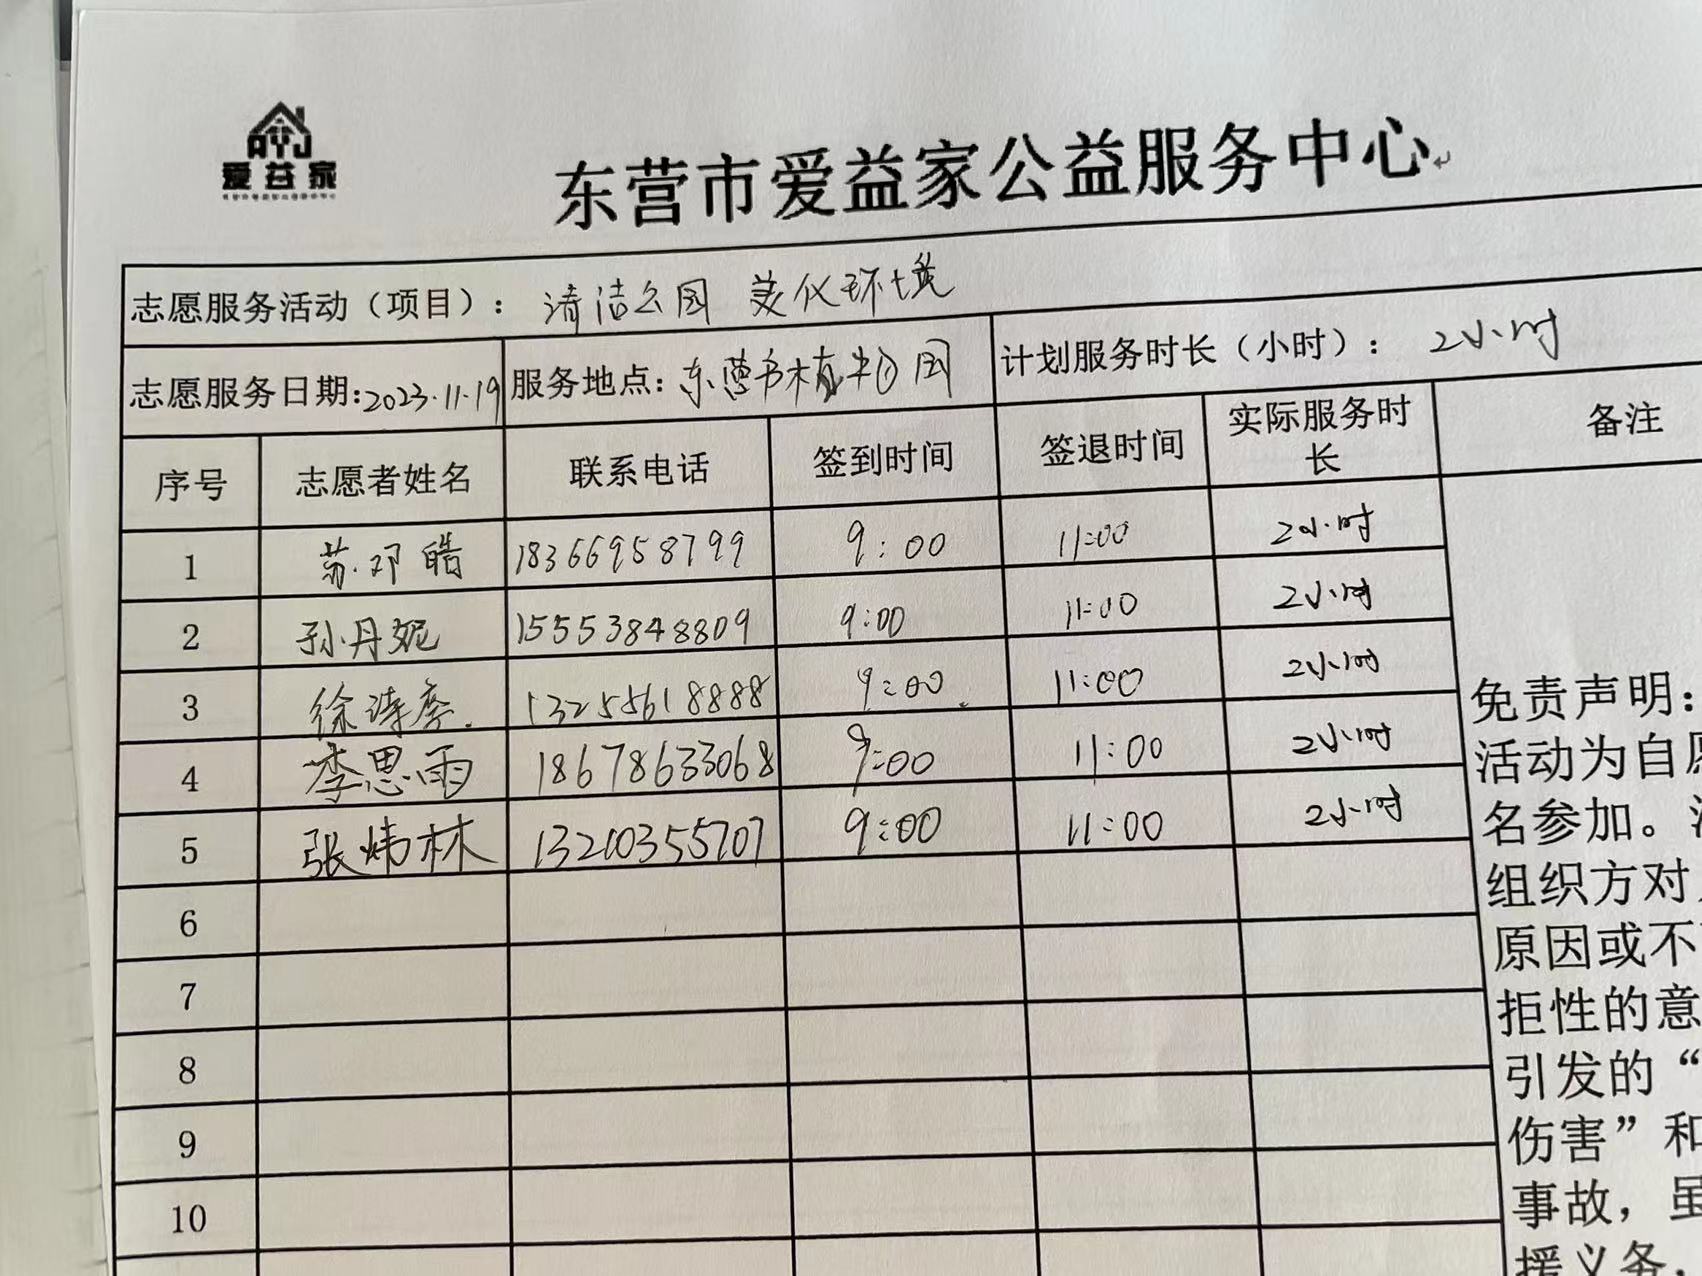 爱益家
东营市爱益家公益服务中心
志愿服务活动（项目）：清洁公园 美化环境
志愿服务日期:2023.11.19 服务地点:东营市植物园 计划服务时长（小时）：2小时
序号 志愿者姓名 联系电话 签到时间 签退时间 实际服务时长 备注
1 苏邓皓 18366958799 9:00 11:00 2小时
2 孙丹妮 15553848809 9:00 11:00 2小时
3 徐 13255618888 9:00 11:00 2小时
4 李思雨 18678633068 9:00 11:00 2小时
5 张炜林 13210355707 9:00 11:00 2小时
6
7
8
9
10
免责声明：
活动为自愿
名参加。
组织方对
原因或不
拒性的意
引发的“
伤害”和
事故，虽
援义务，